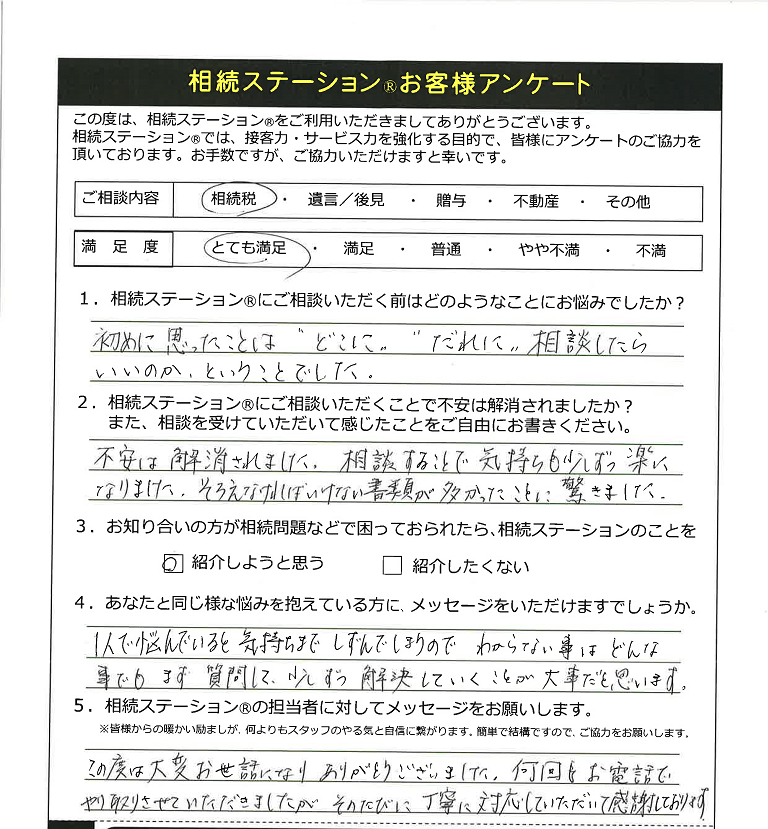 相続ステーション®お客様アンケート
この度は、相続ステーション®をご利用いただきましてありがとうございます。
相続ステーション®では、接客力・サービス力を強化する目的で、皆様にアンケートのご協力を
頂いております。お手数ですが、ご協力いただけますと幸いです。
ご相談内容 相続税 ・ 遺言／後見 ・ 贈与 ・ 不動産 ・ その他
満 足 度 とても満足 ・ 満足 ・ 普通 ・ やや不満 ・ 不満
１．相続ステーション®にご相談いただく前はどのようなことにお悩みでしたか？
初めに思ったことは〝どこに〟〝だれに〟相談したら
いいのか、ということでした。
２．相続ステーション®にご相談いただくことで不安は解消されましたか？
また、相談を受けていただいて感じたことをご自由にお書きください。
不安は解消されました。相談することで気持ちも少しずつ楽に
なりました。そろえなければいけない書類が多かったことに驚きました。
３．お知り合いの方が相続問題などで困っておられたら、相続ステーションのことを
紹介しようと思う 紹介したくない
４．あなたと同じ様な悩みを抱えている方に、メッセージをいただけますでしょうか。
1人で悩んでいると気持ちまでしずんでしまうので わからない事はどんな
事でもまず質問して、少しずつ解決していくことが大事だと思います。
５．相続ステーション®の担当者に対してメッセージをお願いします。
※皆様からの暖かい励ましが、何よりもスタッフのやる気と自信に繋がります。簡単で結構ですので、ご協力をお願いします。
この度は大変お世話になりありがとうございました。何回もお電話で
やり取りさせていただきましたがそのたびに丁寧に対応していただいて感謝しております